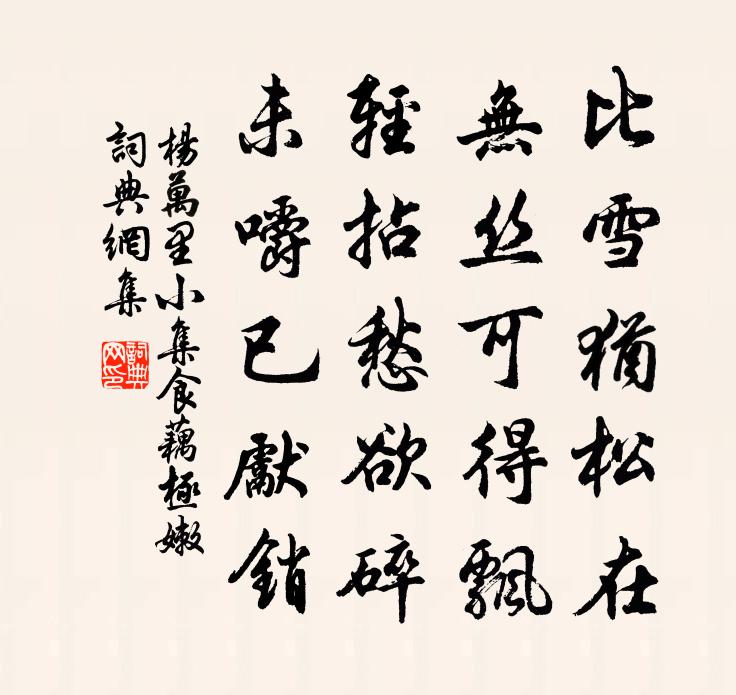 比雪猶松在
無丝可得飄
輕拈愁欲碎
未嚼已獻銷
楊萬里小集食藕極嫩
詞典網集
詞典
网印